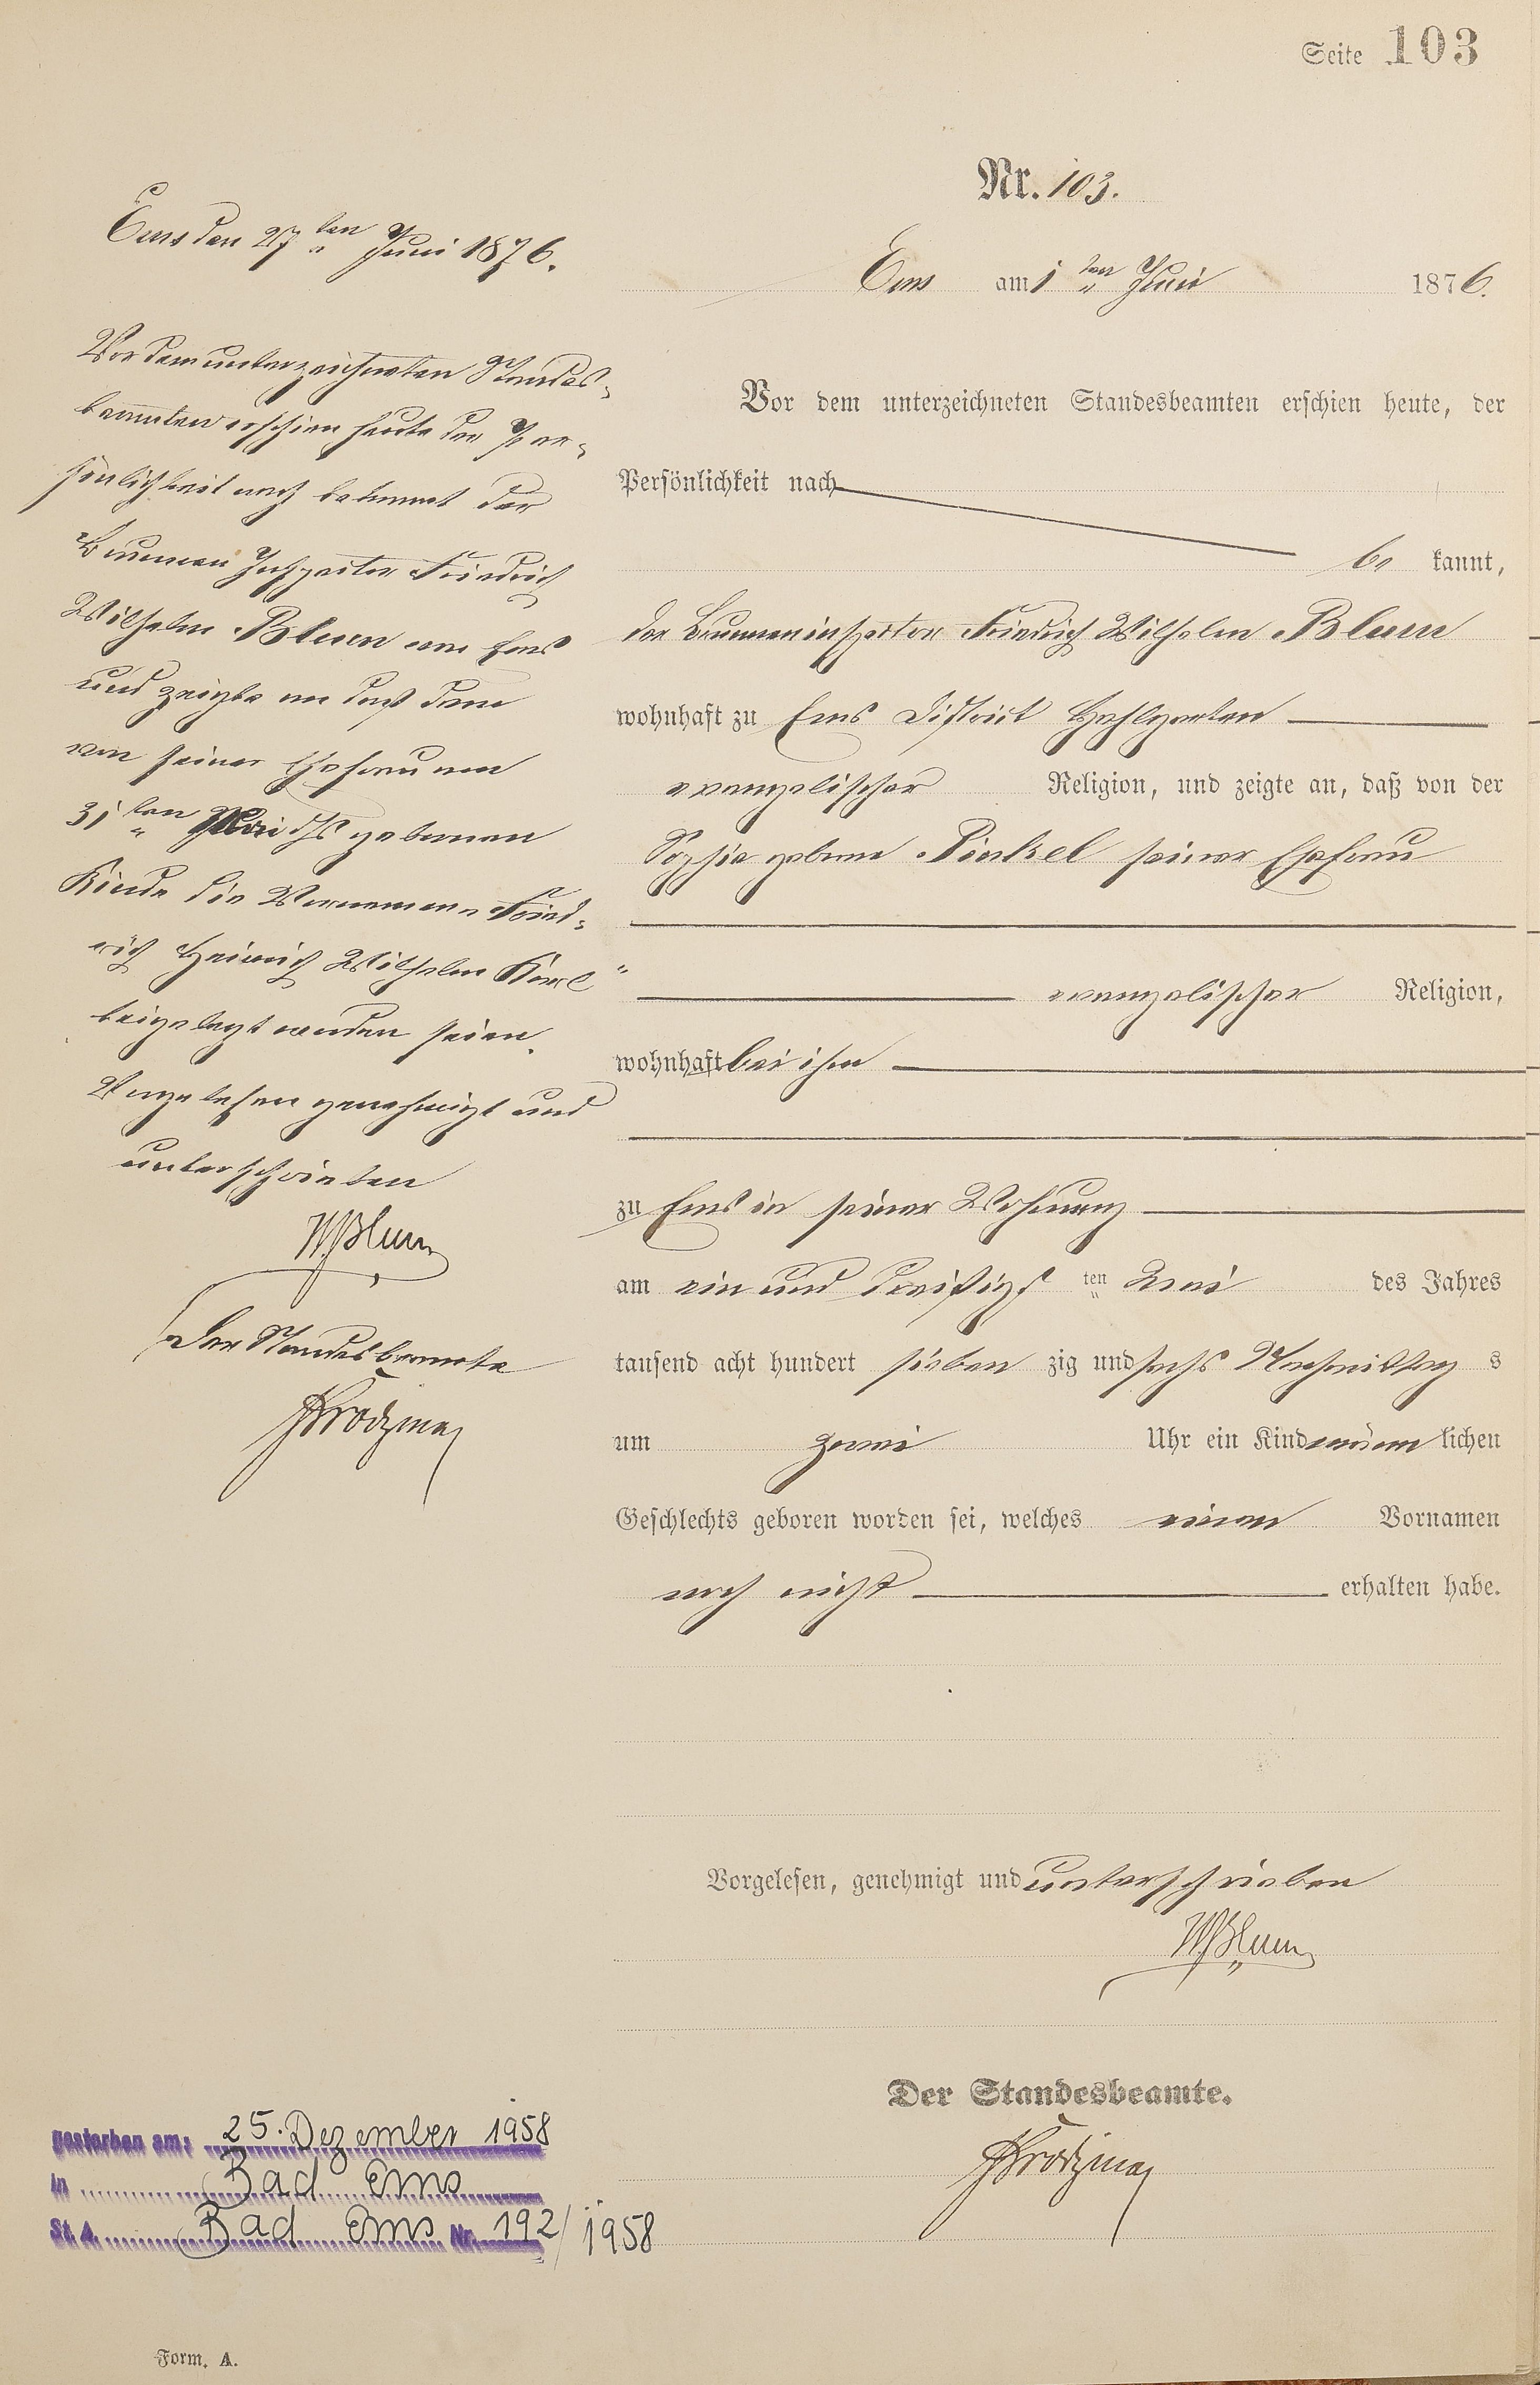 Seite 103
Nr. 103.
Ems am 1ten Juni 1876.
Vor dem unterzeichneten Standesbeamten erschien heute, der
Persönlichkeit nach
be kannt,
der Brunneninspector Friedrich Wilhelm Blum
wohnhaft zu Ems District Hahlgarten
evangelischer Religion, und zeigte an, daß von der
Sophie geborne Pinkel seiner Ehefrau
evangelischer Religion,
wohnhaft bei ihm
zu Ems in seiner Wohnung
am ein und dreißigsten Mai des Jahres
tausend acht hundert sieben zig und sechs Nachmittag s
um zwei Uhr ein Kind männ lichen
Geschlechts geboren worden sei, welches einen Vornamen
noch nicht erhalten habe.
Vorgelesen, genehmigt und unterschrieben
W. Blum
Der Standesbeamte.
Ems den 27ten Juni 1876.
Vor dem unterzeichneten Standes-
beamten erschien heute der Per-
sönlichkeit nach bekannt der
Brunnen Inspector Friedrich
Wilhelm Blum von Ems
und zeigte an daß dem
von seiner Ehefrau am
31ten Mai ds Js gebornen
Kinde die Vornamen Fried-
rich Heinrich Wilhelm Karl
beigelegt worden seien.
Vorgelesen genehmigt und
unterschrieben
W. Blum
Der Standesbeamte
gestorben am: 25. Dezember 1958
in Bad Ems
St. A. Bad Ems Nr. 192/1958
Form. A.